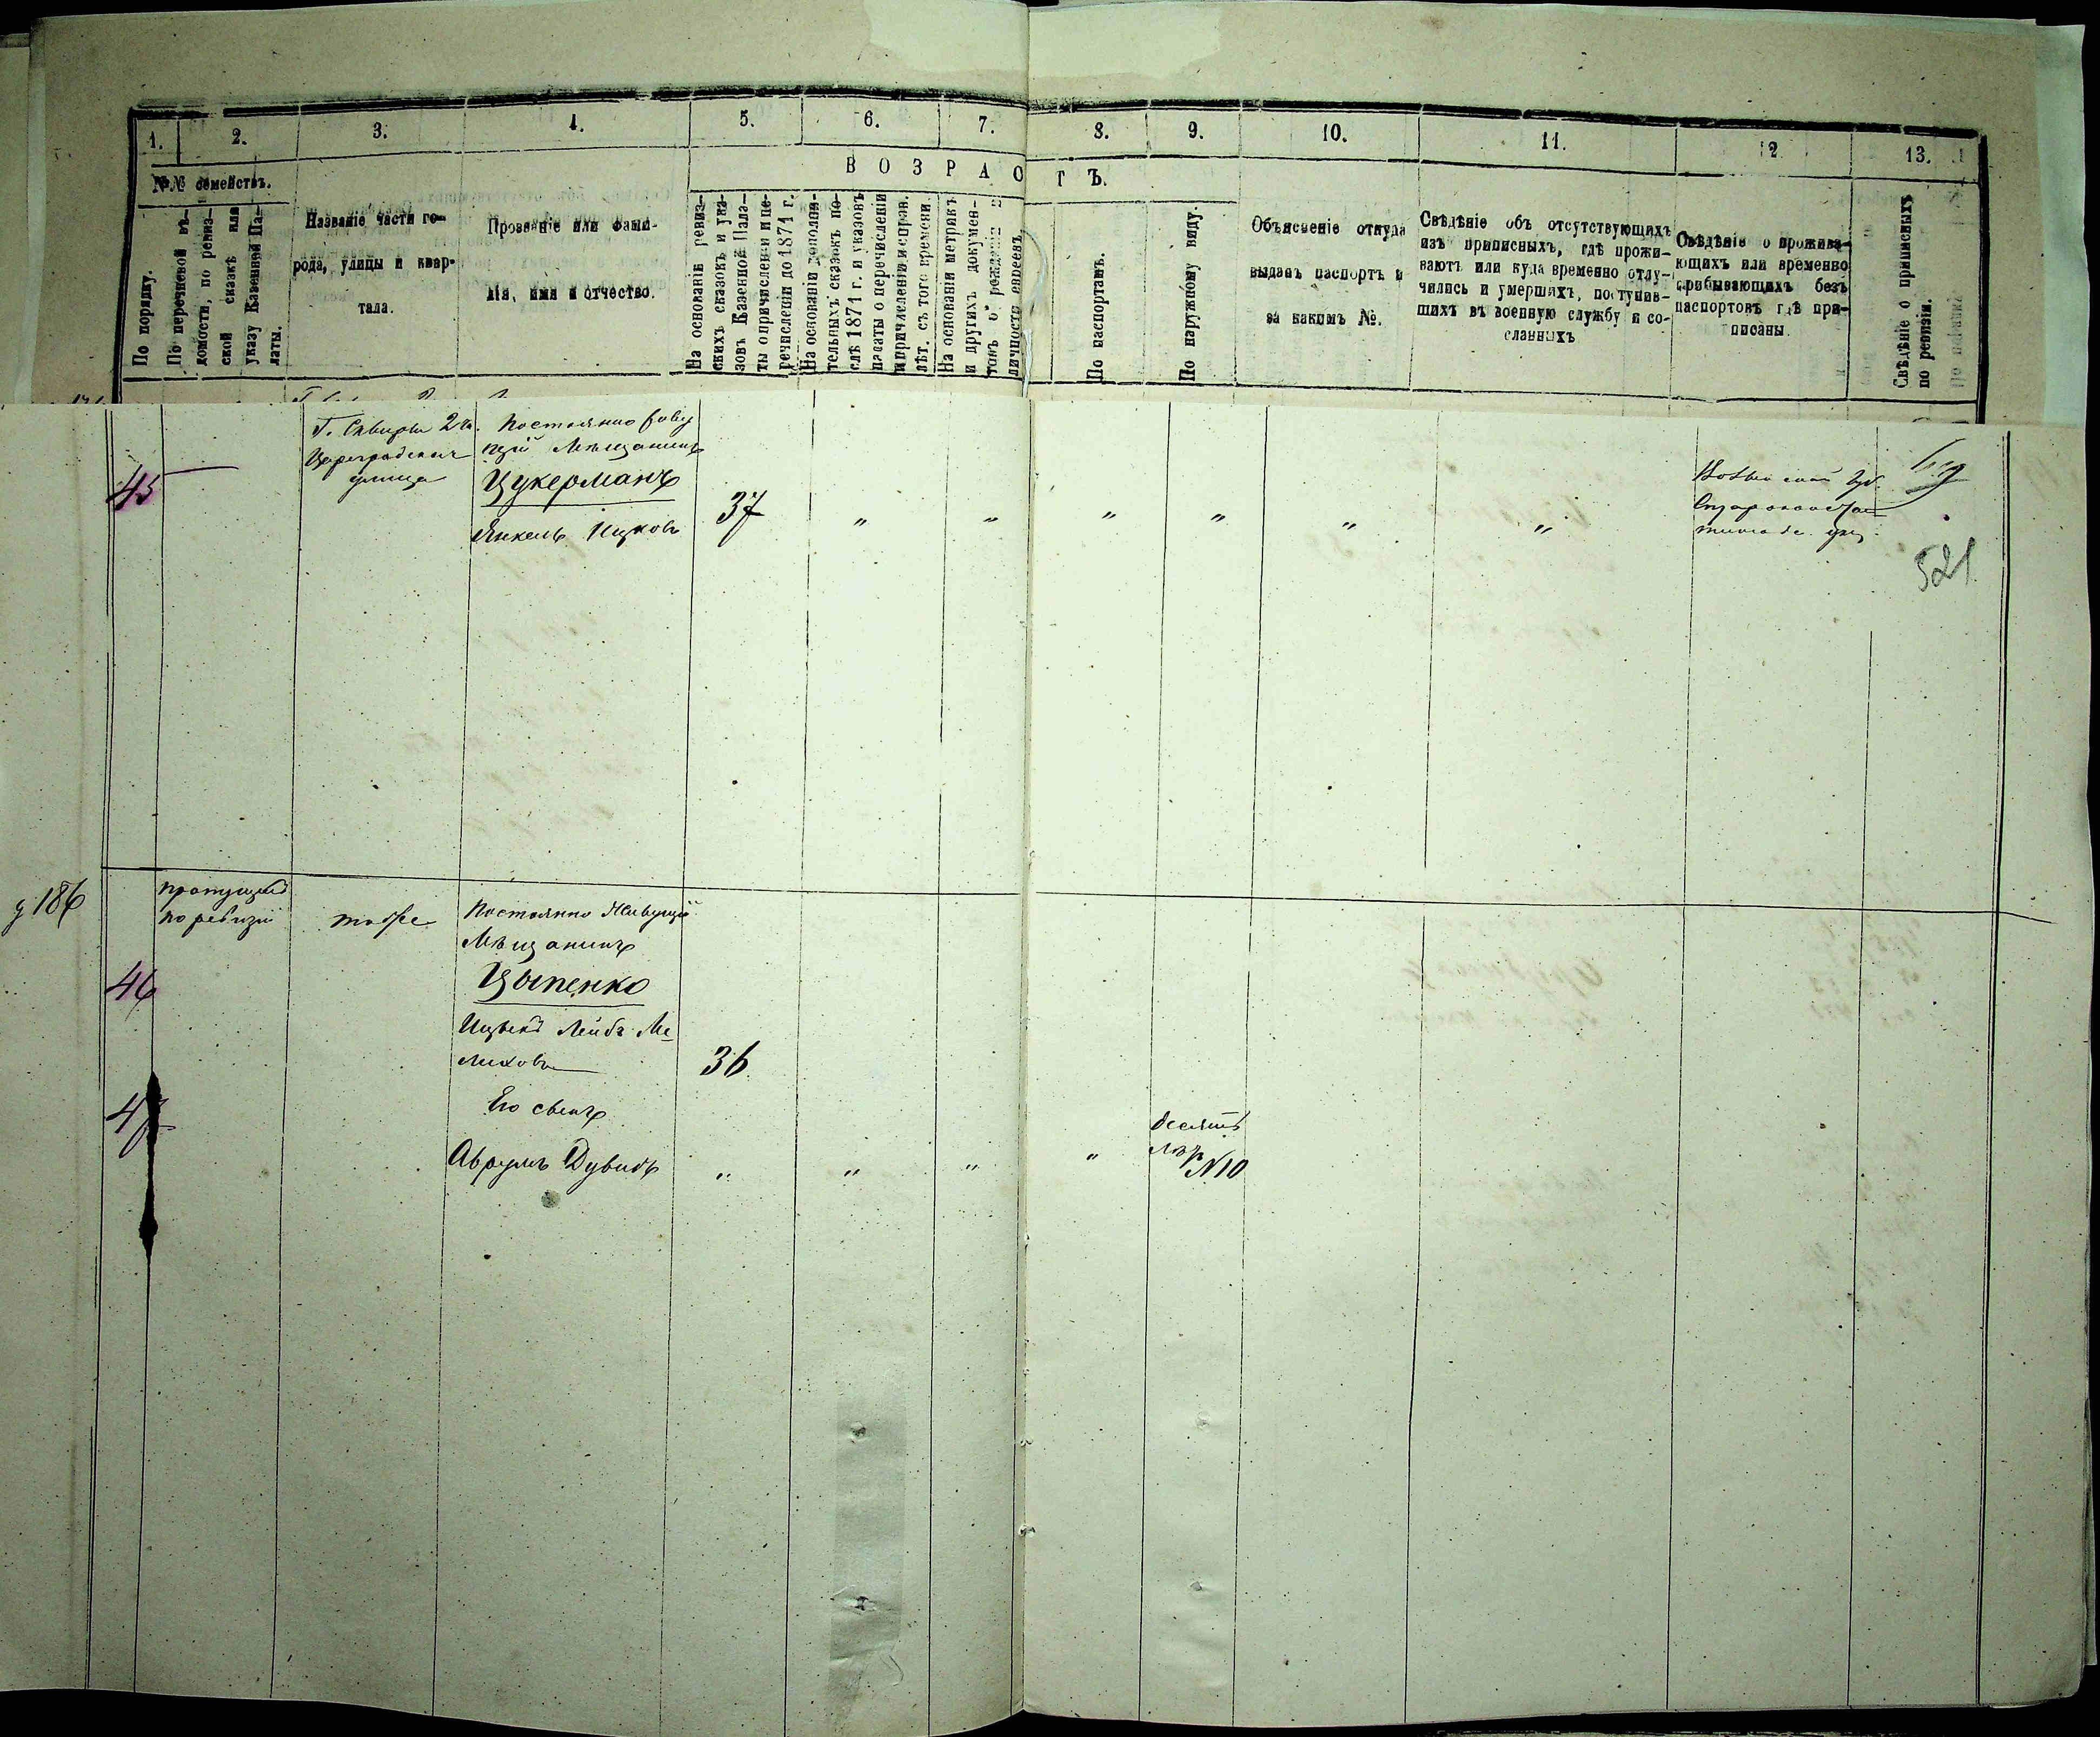 1.
2.
3.
4.
5.
6.
7.
8.
9.
10.
11.
12
13.
№№ семействъ.
ВОЗРАСТЪ.
По порядку.
По перечневой вѣ-
домости, по ревиз-
ской сказкѣ или
указу Казенной Па-
латы.
Названіе части го-
рода, улицы и квар-
тала.
Прозваніе или фами-
лія, имя и отчество.
На основаніи ревиз-
скихъ сказокъ и ука-
зовъ Казенной Пала-
ты о причисленіи и пе-
речисленіи до 1871 г.
На основаніи дополни-
тельныхъ сказокъ по-
слѣ 1871 г. и указовъ
палаты о перечисленіи
и причисленіи и справ.
лѣт. съ того времени.
На основаніи метрикъ
и другихъ докумен-
товъ о рожденіи и
личности евреевъ.
По паспортамъ.
По наружному виду.
Объясненіе откуда
выданъ паспортъ и
за какимъ №.
Свѣдѣніе объ отсутствующихъ
изъ приписныхъ, гдѣ прожи-
ваютъ или куда временно отлу-
чились и умершихъ, поступив-
шихъ въ военную службу и со-
сланныхъ
Свѣдѣніе о прожива-
ющихъ или временно
прибывающихъ безъ
паспортовъ гдѣ при-
писаны.
Свѣдѣніе о приписныхъ
по ревизіи.
45
Г. Сквиры 2 ч.
улица
Постоянно
Мѣщанинъ
Цукерманъ
Янкель Ицковъ
37
" " " " " "
губ.
521
у 186
по ревизіи
тоже
Постоянно Живущій
Мѣщанинъ
46
Цыпенко
Лейбъ Ме
лиховъ
36
47
Его сынъ
Аврумъ Дувидъ
" " " "
десять
лѣтъ
№10